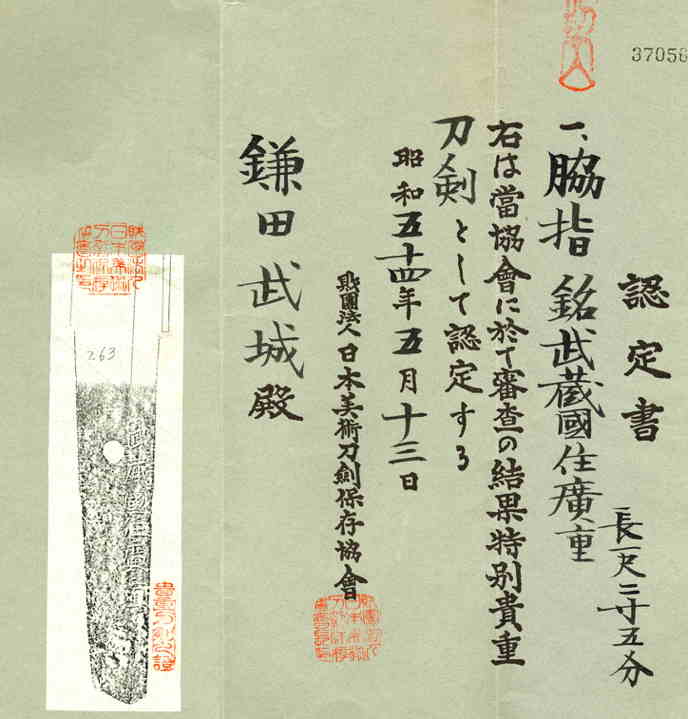 37056
認定書
一、脇指 銘武蔵國住廣重
長一尺二寸五分
右は當協會に於て審査の結果特別貴重
刀剣として認定する
昭和五十四年五月十三日
財團法人日本美術刀劍保存協會
鎌田武城殿
263